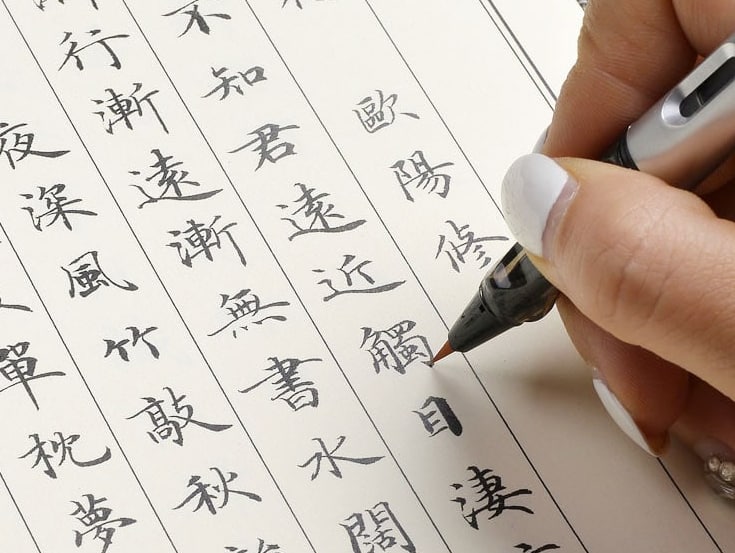 歐陽修
不知君遠近觸目淒
行漸遠漸無書水闊
夜深風竹敲秋
單枕夢